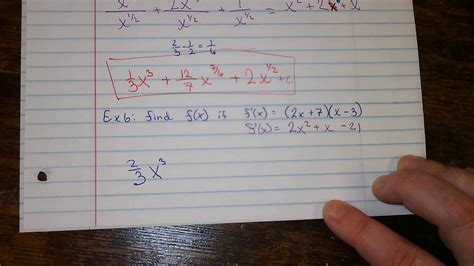 x^(1/2) + x^(1/2) + x^(1/2)
2/3 - 1/2 = 1/6
1/3 x^3 + 12/7 x^(7/6) + 2x^(1/2) + c
Ex 6: find f(x) if f'(x) = (2x+7)(x-3)
f'(x) = 2x² + x - 21
2/3 x³